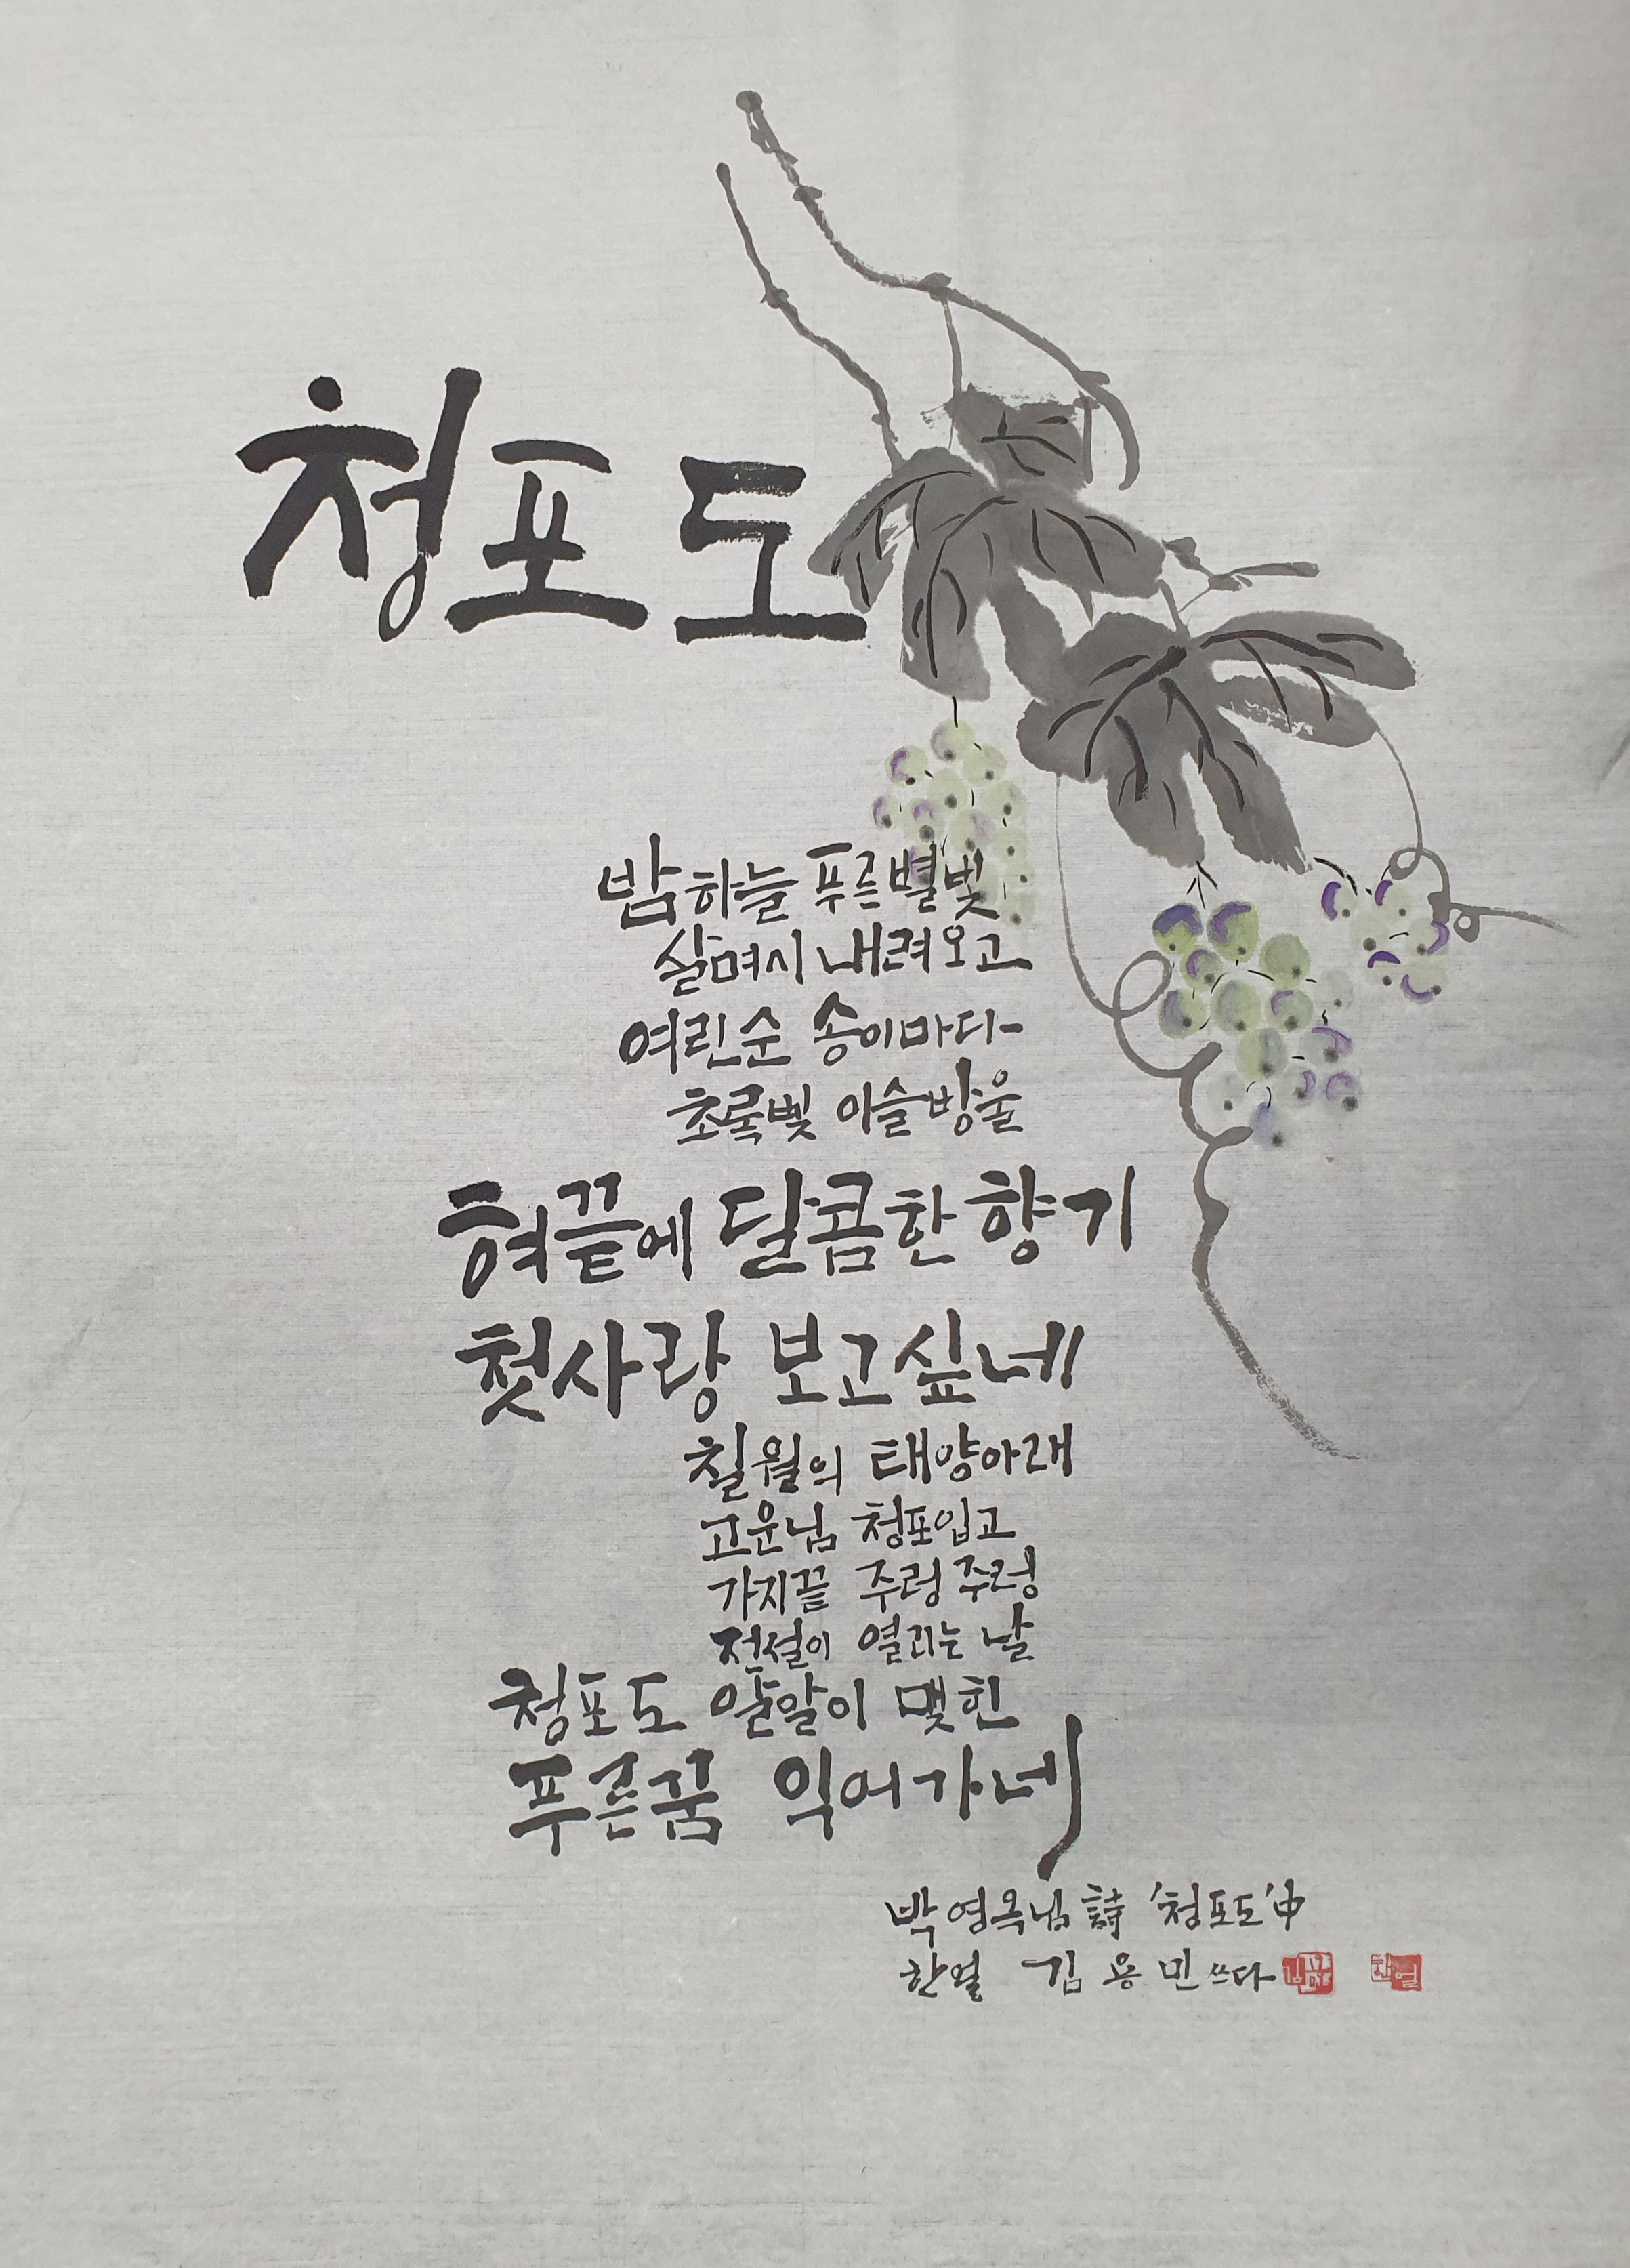 청포도
밤하늘 푸른별빛
살며시 내려오고
여린순 송이마다
초록빛 이슬방울
혀끝에 달콤한 향기
첫사랑 보고싶네
칠월의 태양아래
고운님 청포입고
가지끝 주렁주렁
전설이 열리는 날
청포도 알알이 맺힌
푸른꿈 익어가네
박영옥님 詩 '청포도' 中
한얼 김용민 쓰다
한얼